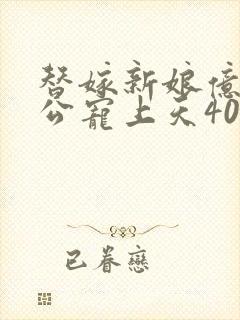 替嫁新娘億
公寵上天40
已眷戀